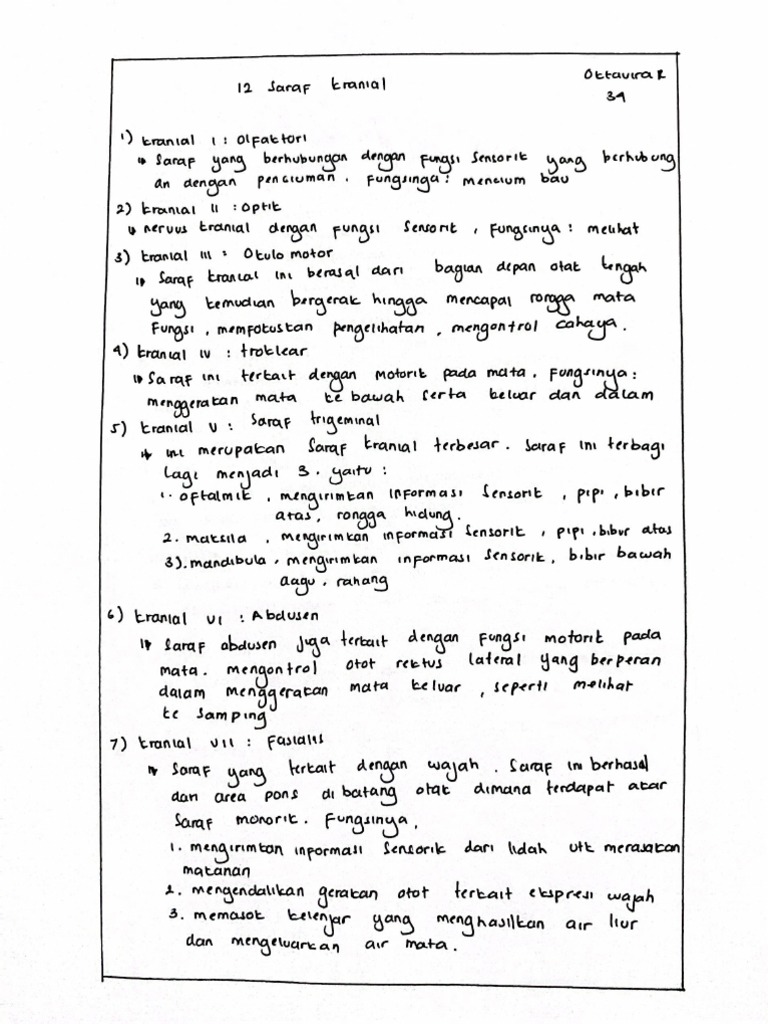 12 Saraf kranial
Oktavira R
39
1) kranial I : Olfaktori
Saraf yang berhubungan dengan fungsi sensorik yang berhubung
an dengan penciuman. Fungsinga : mencium bau
2) kranial II : Optik
nervus kranial dengan fungsi sensorik, fungsinya : melihat
3) kranial III : Okulo motor
Saraf kranial ini berasal dari bagian depan otak tengah
yang kemudian bergerak hingga mencapai rongga mata
Fungsi, memfokuskan pengelihatan, mengontrol cahaya.
4) kranial IV : troklear
Saraf ini terkait dengan motorik pada mata. Fungsinya :
menggerakan mata ke bawah serta keluar dan dalam
5) kranial V : Saraf trigeminal
ini merupakan saraf kranial terbesar. Saraf ini terbagi
lagi menjadi 3. yaitu :
1. oftalmik, mengirimkan informasi sensorik, pipi, bibir
atas, rongga hidung.
2. maksila, mengirimkan informasi sensorik, pipi, bibir atas
3). mandibula, mengirimkan informasi sensorik, bibir bawah
dagu, rahang
6) kranial VI : Abdusen
Saraf abdusen juga terkait dengan fungsi motorik pada
mata. mengontrol otot rektus lateral yang berperan
dalam menggerakan mata keluar, seperti melihat
ke samping
7) kranial VII : Fasialis
Saraf yang terkait dengan wajah. Saraf ini berhasal
dari area pons di batang otak dimana terdapat akar
saraf monorik. Fungsinya,
1. mengirimkan informasi sensorik dari lidah utk merasakan
makanan
2. mengendalikan gerakan otot terkait ekspresi wajah
3. memasok kelenjar yang menghasilkan air liur
dan mengeluarkan air mata.